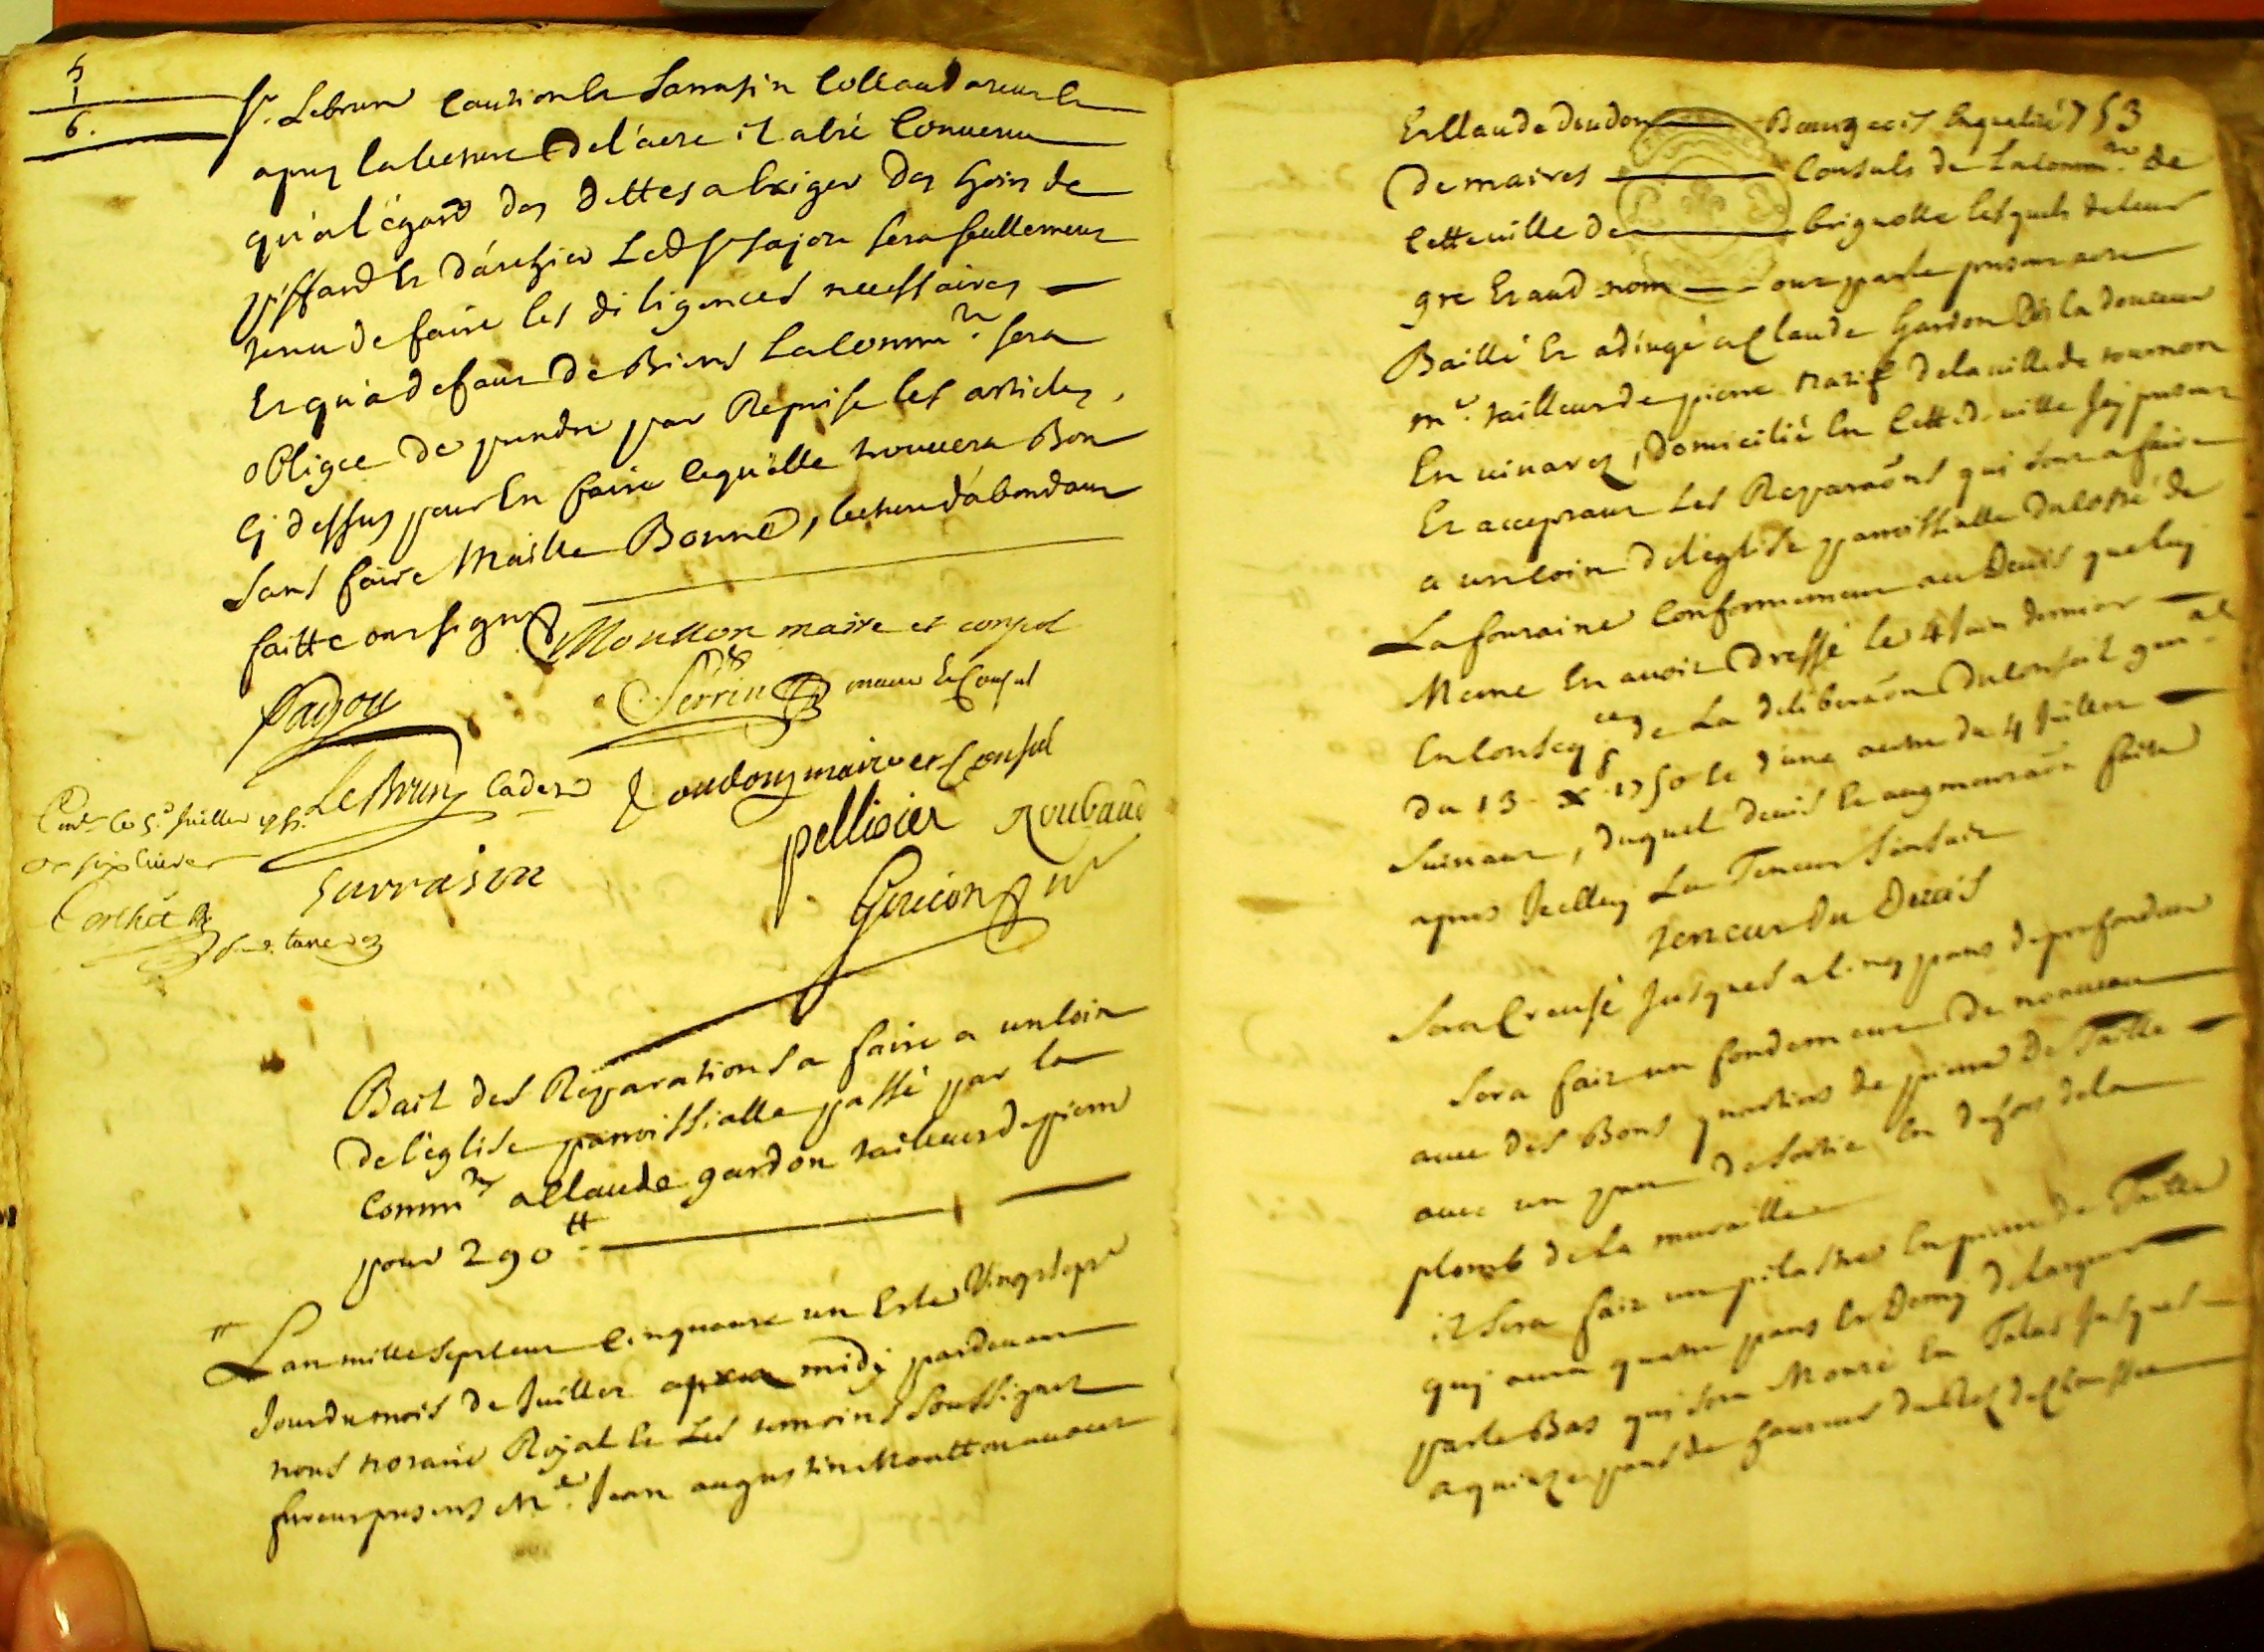 5
1
6.
Sr. Lebrun caution le Sarrasin collaudateur et
apres la lecture de l'acte il a été convenu
qu'a l'égard des dettes a exiger des hoirs de
piffard et d'arthier led Sr fajou sera seullement
tenu de faire les diligences necessaires
et qu'a defaut de Biens la commté sera
obligée de prendre par Reprise les articles
cy dessus pour en faire ce qu'elle trouvera Bon
sans faire Maille Bonne, lecture d'abondant
faitte ont signé
Moutton maire et consul
fajou
Perrin maire et Consul
LeBrun cadet
Doudon maire et Consul
Conlé le 5e Juillet
six livres
pellicier Roubaud
Sarrasin
Goujon
Bail des Réparations a faire a un coin
de l'église parroissialle passé par la
commté a Claude gardon tailleur de pierre
pour 290 tt
L'an mille sept cent cinquante un et le vingt sept
Jour du mois de Juillet apres midy pardevant
nous notaire Royal et les temoins soussignez
furent presens Me. Jean augustin Moutton avocat
et Claude doudon Bourgeois en qualité 753
de maires Consuls de la commté de
cette ville de brignolle lesquels de leur
gre et aud nom ont par le present acte
Baillé et adjugé a Claude Gardon dit la douceur
me. tailleur de pierre natif de la ville de tournon
en vivarez, domicilié en cette d. ville icy present
et acceptant les Reparaõns qui sont a faire
a un coin de l'eglise parroissialle du costé de
La fontaine conformement au Devis que luy
Meme en avoit dressé le 4 Juin dernier
en conseqce de la déliberaõn du conseil genal
du 13 Xbre 1750 et d'une autre du 4 Juillet
suivant, duquel devis et augmentaõn faitte
apres icelluy La Teneur s'ensuit
Teneur du Devis
Sera Creusé Jusques a cinq pans de profondeur
Sera fait un fondement de nouveau
avec des Bons quartiers de pierre de Taille
avec un pan de sortie en dehors de la
plomb de la muraille
il sera fait un pilastre en pierre de Taille
qui aura quatre pans et Demy de largeur
par le Bas qui sera Monté en Talus Jusques
a quinze pans de hauteur